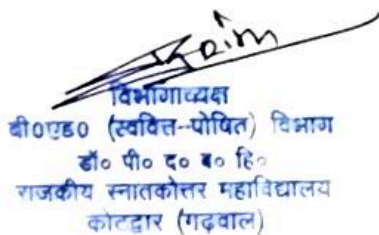 विभागाध्यक्ष
बी०एड० (स्ववित्त--पोषित) विभाग
डॉ० पी० द० ब० हि०
राजकीय स्नातकोत्तर महाविद्यालय
कोटद्वार (गढ़वाल)